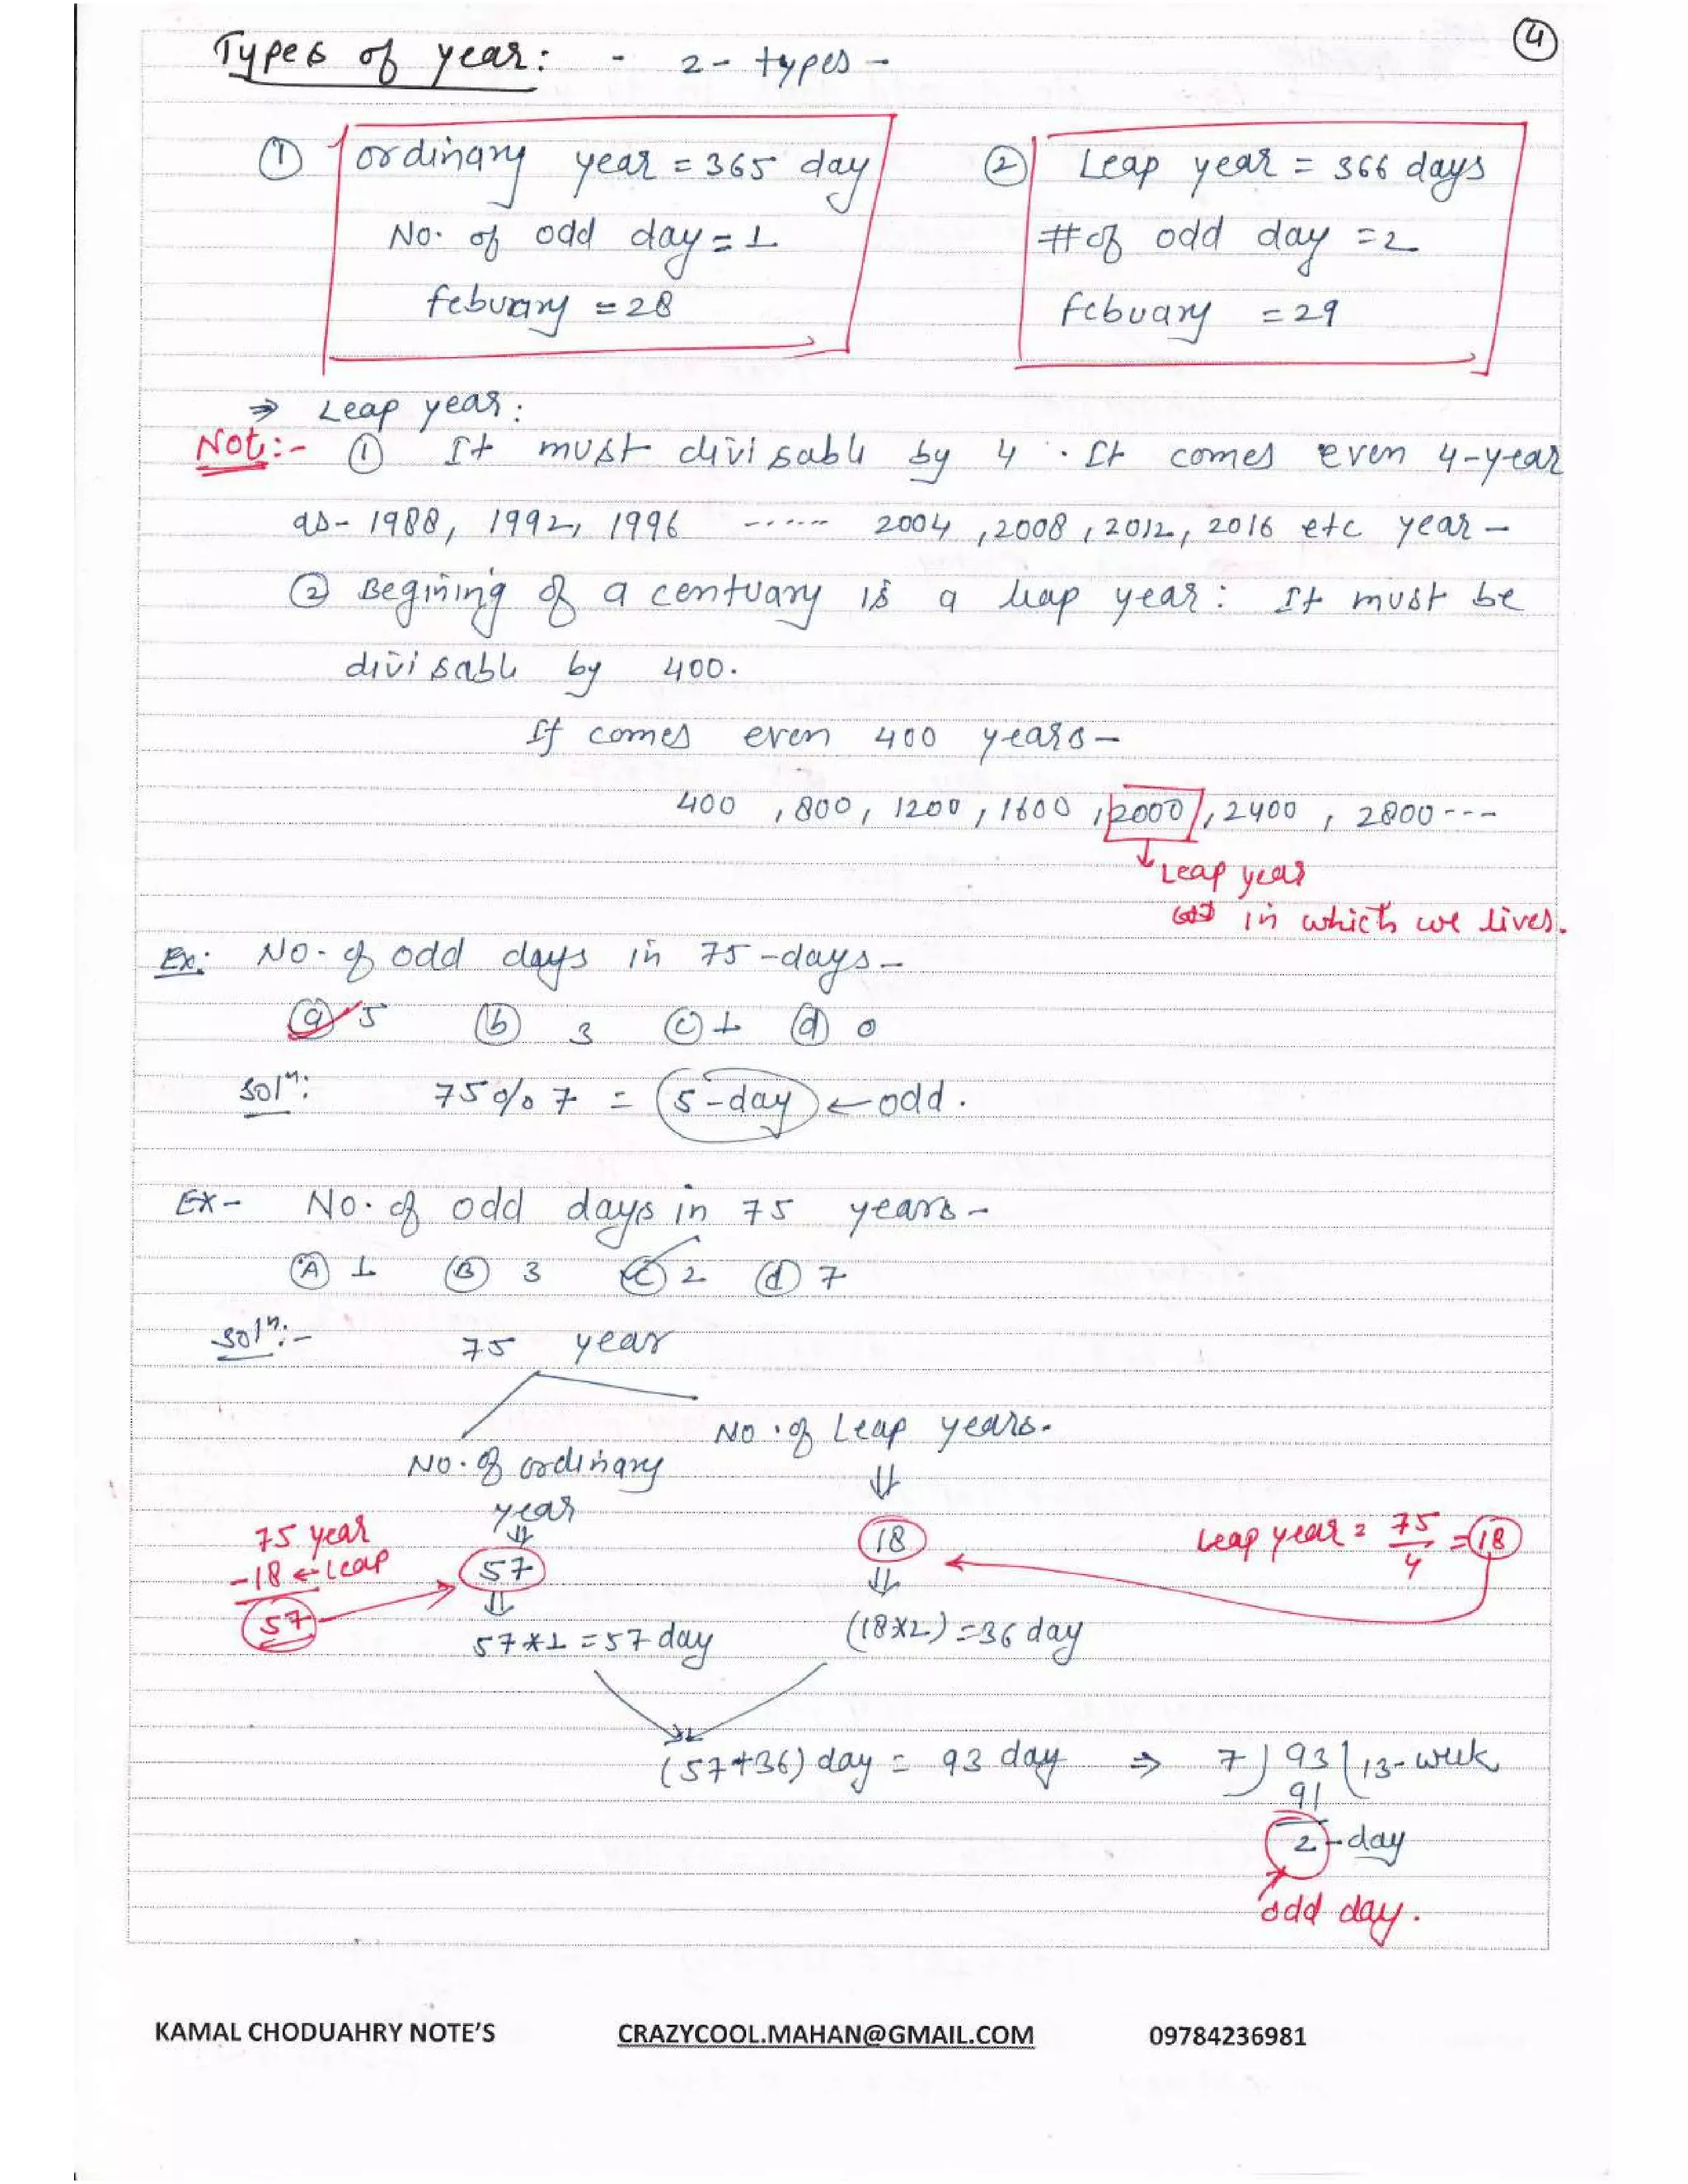 4
Types of year: - 2- types -
① ordinary year = 365 day
No. of odd day = 1
febuary = 28
② Leap year = 366 days
# of odd day = 2
Febuary = 29
⇒ Leap year:
Not:- ① It must divisable by 4. It comes even 4-year
as- 1988, 1992, 1996 ------ 2004, 2008, 2012, 2016 etc year -
② Begining of a centuary is a leap year: It must be
divisable by 400.
If comes even 400 years-
400, 800, 1200, 1600, 2000, 2400, 2800---
↓ Leap year
in which we lives.
Ex: No. of odd days in 75-days-
ⓐ 5 ⓑ 3 ⓒ 1 ⓓ 0
Solⁿ: 75 % 7 = 5-day ← odd.
Ex- No. of odd days in 75 years-
Ⓐ 1 Ⓑ 3 Ⓒ 2 ⓓ 7
Solⁿ:- 75 year
No. of Leap years.
No. of ordinary
year
⇓
75 year
-18 ← Leap
57
57
⇓
57*1 = 57 day
⇓
18
⇓
(18×2) = 36 day
Leap year = 75/4 = 18
(57+36) day = 93 day ⇒ 7 ) 93 ( 13-week
91
2-day
odd day.
KAMAL CHODUAHRY NOTE'S CRAZYCOOL.MAHAN@GMAIL.COM 09784236981